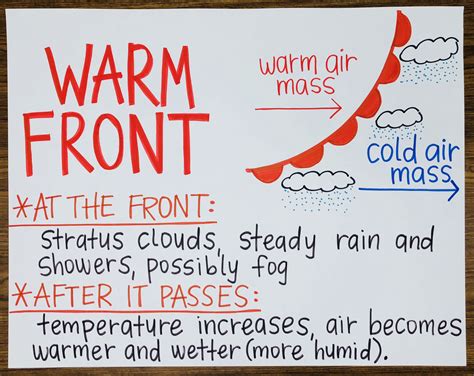 WARM
FRONT
warm air
mass
cold air
mass
*AT THE FRONT:
stratus clouds, steady rain and
showers, possibly fog
*AFTER IT PASSES:
temperature increases, air becomes
warmer and wetter (more humid).